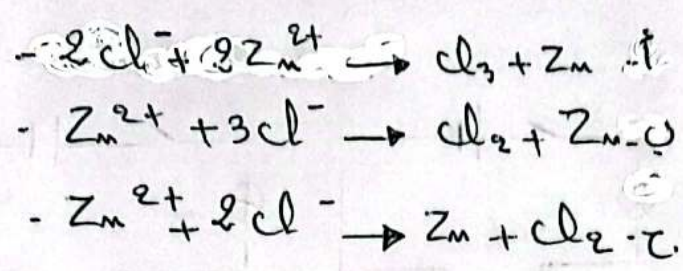 - 2Cl⁻ + 2Zn²⁺ → Cl₃ + Zn -أ
- Zn²⁺ + 3Cl⁻ → Cl₂ + Zn -ب
- Zn²⁺ + 2Cl⁻ → Zn + Cl₂ -ج